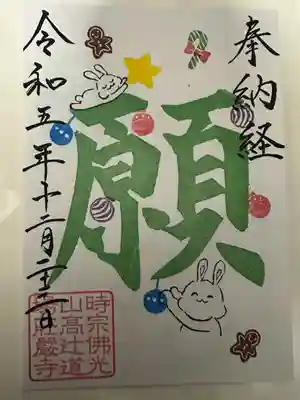 奉納経
願
令和五年十二月
時宗佛光
山高辻道
場莊嚴寺